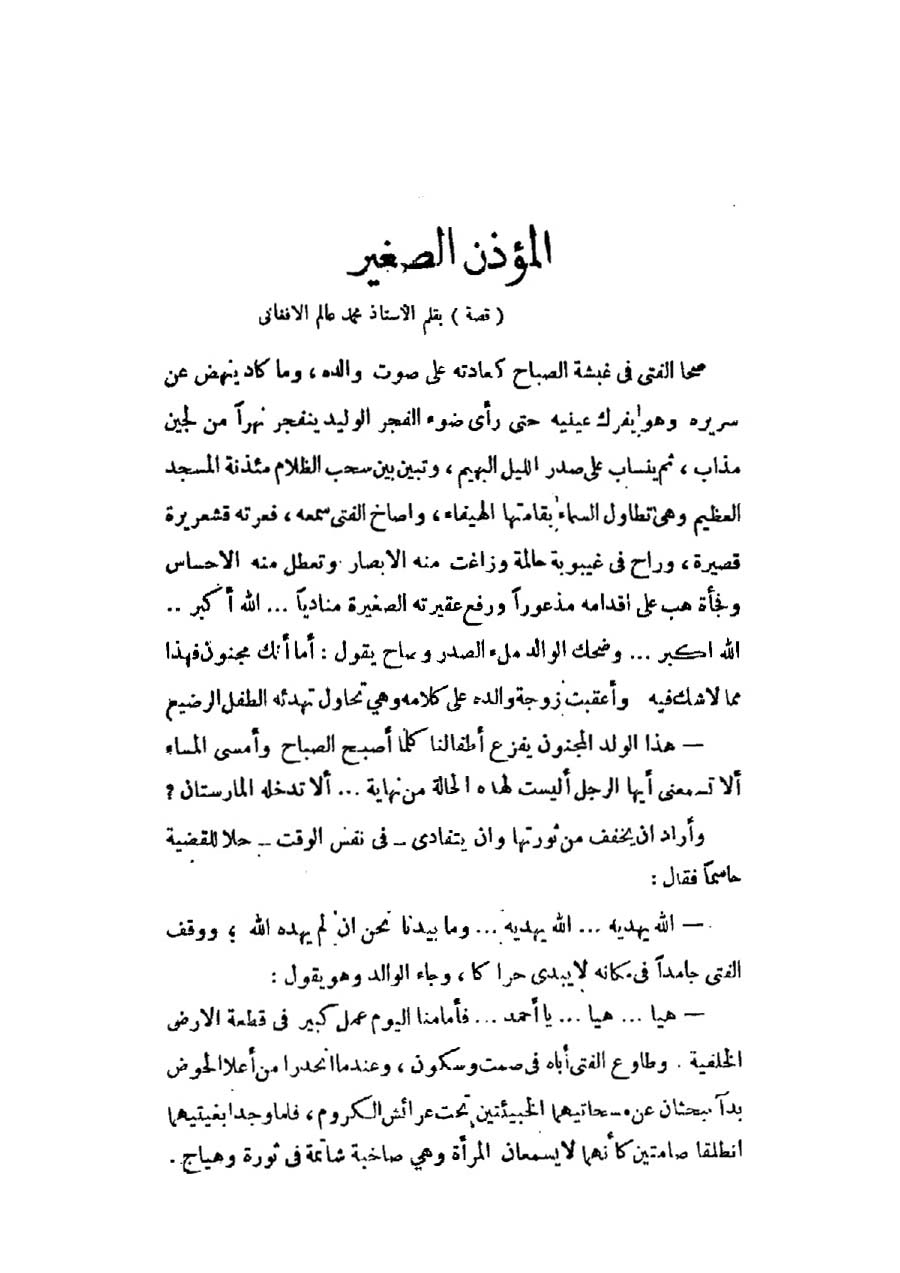 المؤذن الصغير
( قصة ) بقلم الأستاذ محمد عالم الافغانى
صحا الفتى فى غبشة الصباح كعادته على صوت والده ، وما كاد ينهض عن
سريره وهو يفرك عينيه حتى رأى ضوء الفجر الوليد ينفجر نهراً من لجين
مذاب ، ثم ينساب على صدر الليل البهيم ، وتبين بين سحب الظلام مئذنة المسجد
العظيم وهى تطاول السماء بقامتها الهيفاء ، واصاخ الفتى سمعه ، فعرته قشعريرة
قصيرة ، وراح فى غيبوبة حالمة وزاغت منه الابصار وتعطل منه الاحساس
وفجأة هب على اقدامه مذعوراً ورفع عقيرته الصغيرة منادياً ... الله أكبر ..
الله اكبر ... وضحك الوالد ملء الصدر وصاح يقول : أما أنك مجنون فهذا
مما لاشك فيه وأعقبت زوجة والده على كلامه وهي تحاول تهدئه الطفل الرضيع
— هذا الولد المجنون يفزع أطفالنا كلما أصبح الصباح وأمسى المساء
ألا تسمعنى أيها الرجل أليست لهذه الحالة من نهاية ... ألا تدخله المارستان ؟
وأراد ان يخفف من ثورتها وان يتفادى – فى نفس الوقت – حلا للقضية
حاسماً فقال :
— الله يهديه ... الله يهديه ... وما بيدنا نحن ان لم يهده الله ؛ ووقف
الفتى جامداً فى مكانه لا يبدى حراكا ، وجاء الوالد وهو يقول :
— هيا ... هيا ... يا أحمد ... فأمامنا اليوم عمل كبير فى قطعة الارض
الخلفية . وطاوع الفتى أباه فى صمت وسكون ، وعندما انحدرا من أعلا الحوض
بدآ يبحثان عن مسحاتيهما الخبيئتين تحت عرائش الكروم ، فلما وجدا بغيتيهما
انطلقا صامتين كأنهما لا يسمعان المرأة وهي صاخبة شاتمة فى ثورة وهياج .